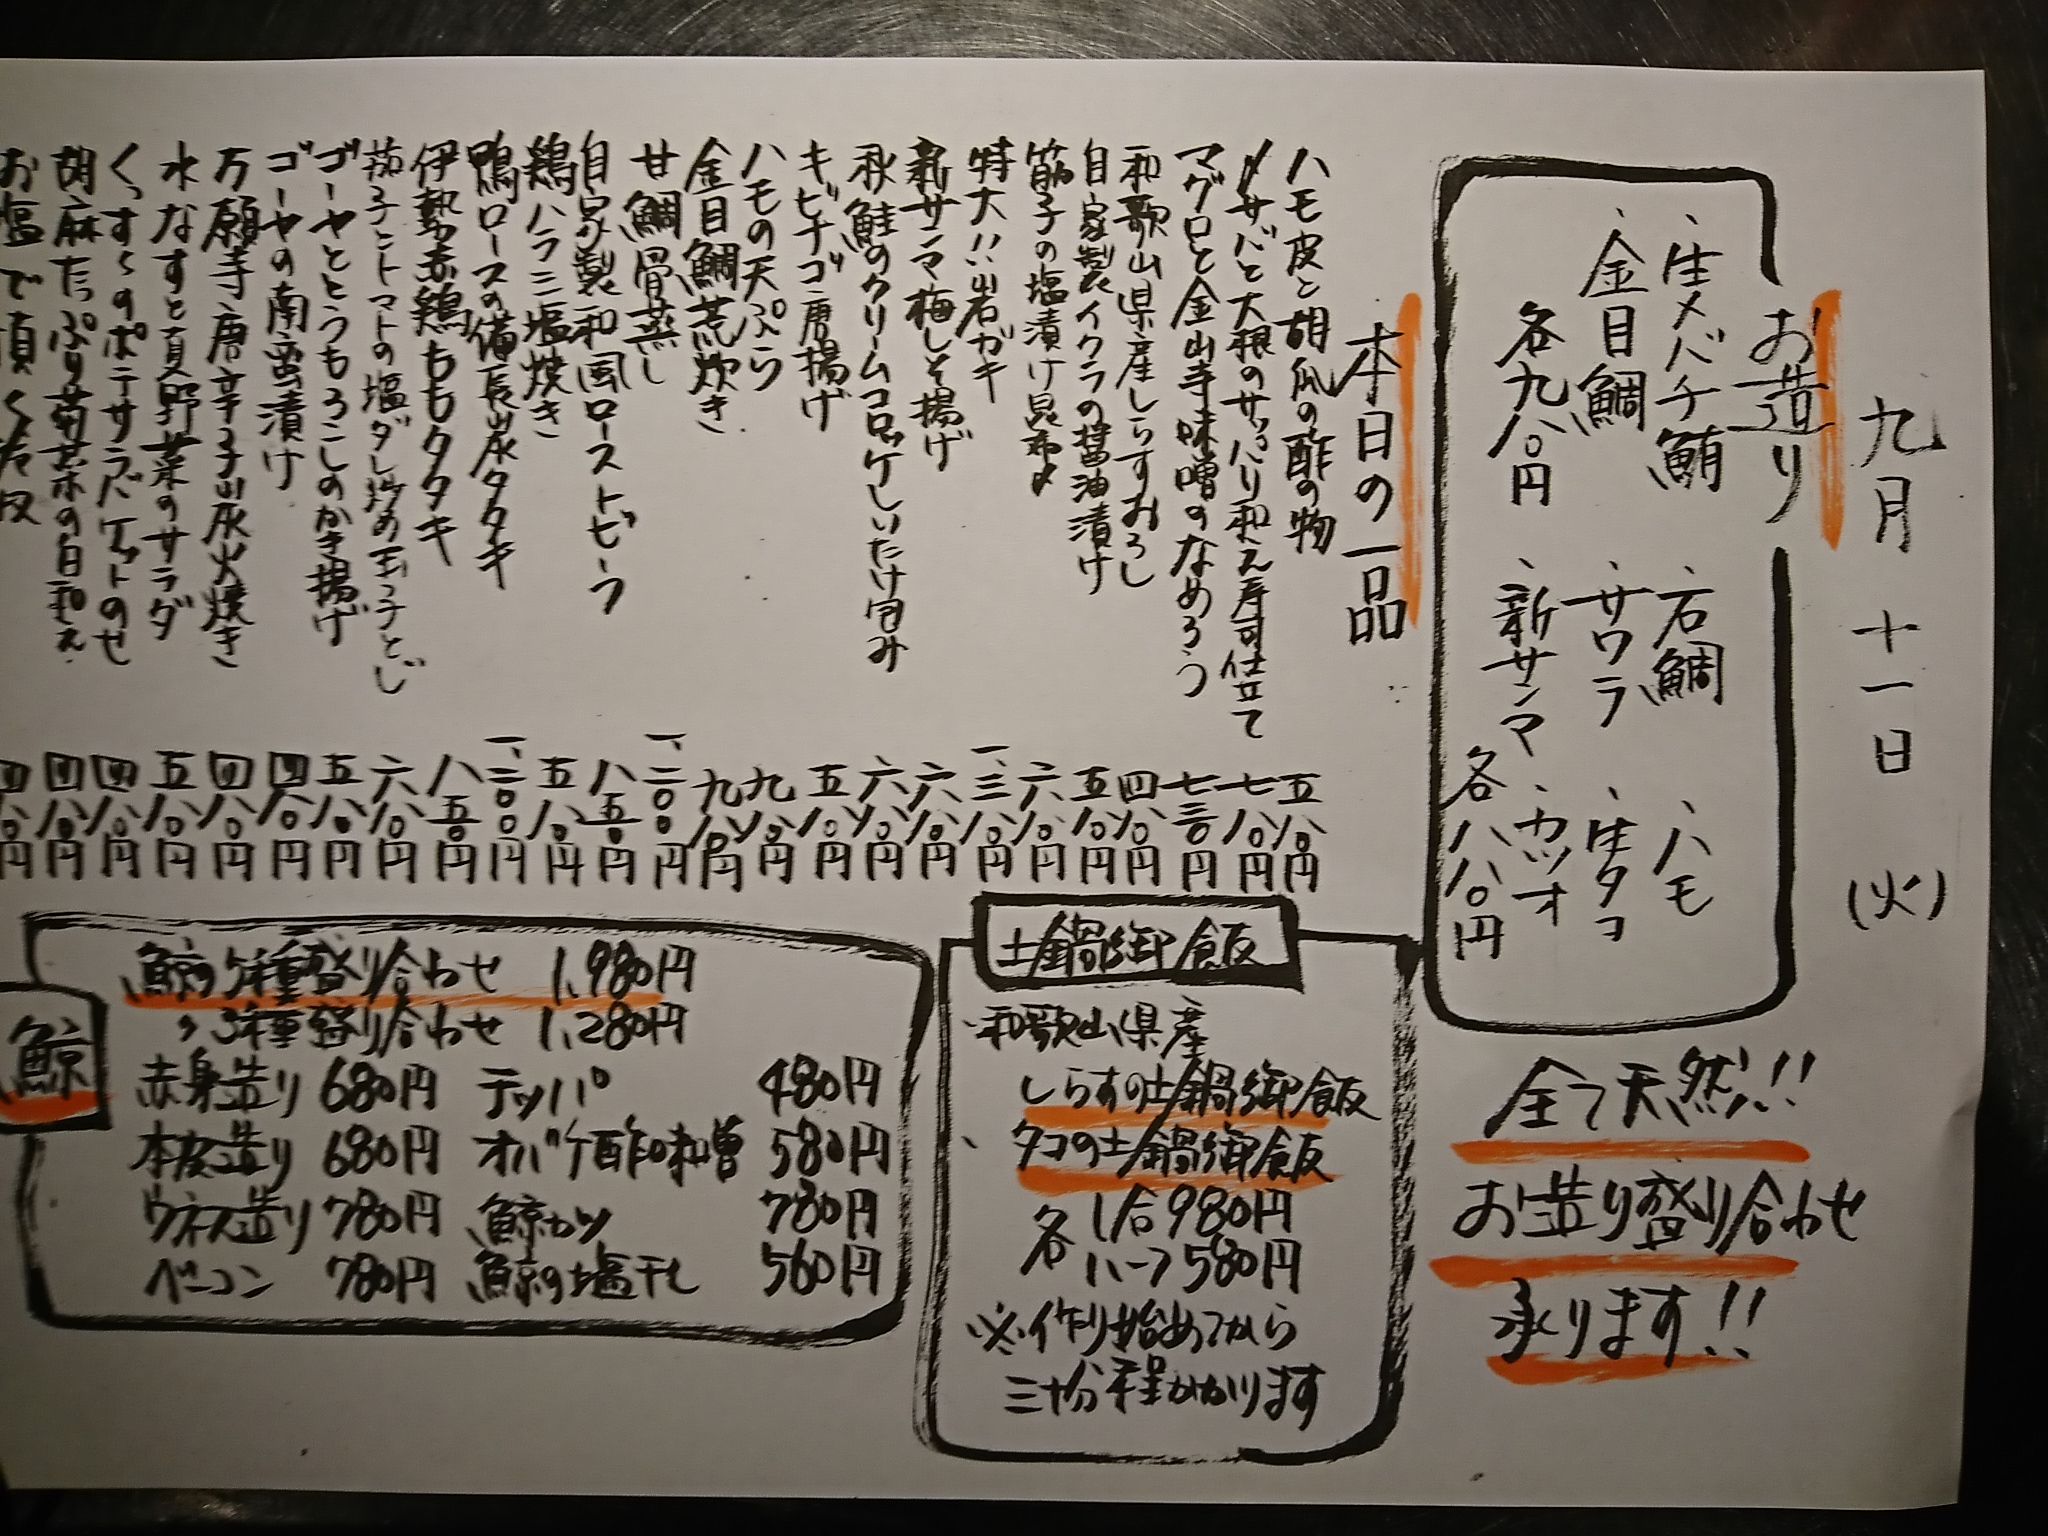 九月 十一日 (火)
お造り
、生メバチ鮪 、石鯛 、ハモ
、金目鯛 、サワラ 、生タコ
各九八〇円 、新サンマ 、カツオ
各八八〇円
全て天然!!
お造り盛り合わせ
承ります!!
本日の一品
ハモ皮と胡瓜の酢の物 五八〇円
〆サバと大根のサッパリ和え寿司仕立て 七八〇円
マグロと金山寺味噌のなめろう 七三〇円
和歌山県産しらすおろし 四八〇円
自家製イクラの醤油漬け 五八〇円
筋子の塩漬け昆布〆 六八〇円
特大!!岩ガキ 一、三八〇円
新サンマ梅しそ揚げ 六八〇円
秋鮭のクリームコロッケしいたけ包み 六八〇円
キビナゴ唐揚げ 五八〇円
ハモの天ぷら 九八〇円
金目鯛荒炊き 九八〇円
甘鯛骨蒸し 一、二〇〇円
自家製和風ローストビーフ 八五〇円
鶏ハラミ塩焼き 五八〇円
鴨ロースの備長炭タタキ 一、二〇〇円
伊勢赤鶏ももタタキ 八五〇円
茄子とトマトの塩ダレ炒め玉子とじ 六八〇円
ゴーヤととうもろこしのかき揚げ 五八〇円
ゴーヤの南蛮漬け 四八〇円
万願寺唐辛子炭火焼き 四八〇円
水なすと夏野菜のサラダ 五八〇円
くっすくのポテサラバケットのせ 四八〇円
胡麻たっぷり菊菜の白和え 四八〇円
お塩で頂く冷奴 四八〇円
土鍋御飯
、和歌山県産
しらすの土鍋御飯
、タコの土鍋御飯
各 1合980円
ハーフ580円
※作り始めてから
三十分程かかります
鯨
鯨5種盛り合わせ 1,980円
〃3種盛り合わせ 1,280円
赤身造り 680円 テッパ 480円
本皮造り 680円 オバケ酢味噌 580円
ウネス造り 780円 鯨カツ 780円
ベーコン 780円 鯨の塩干し 560円